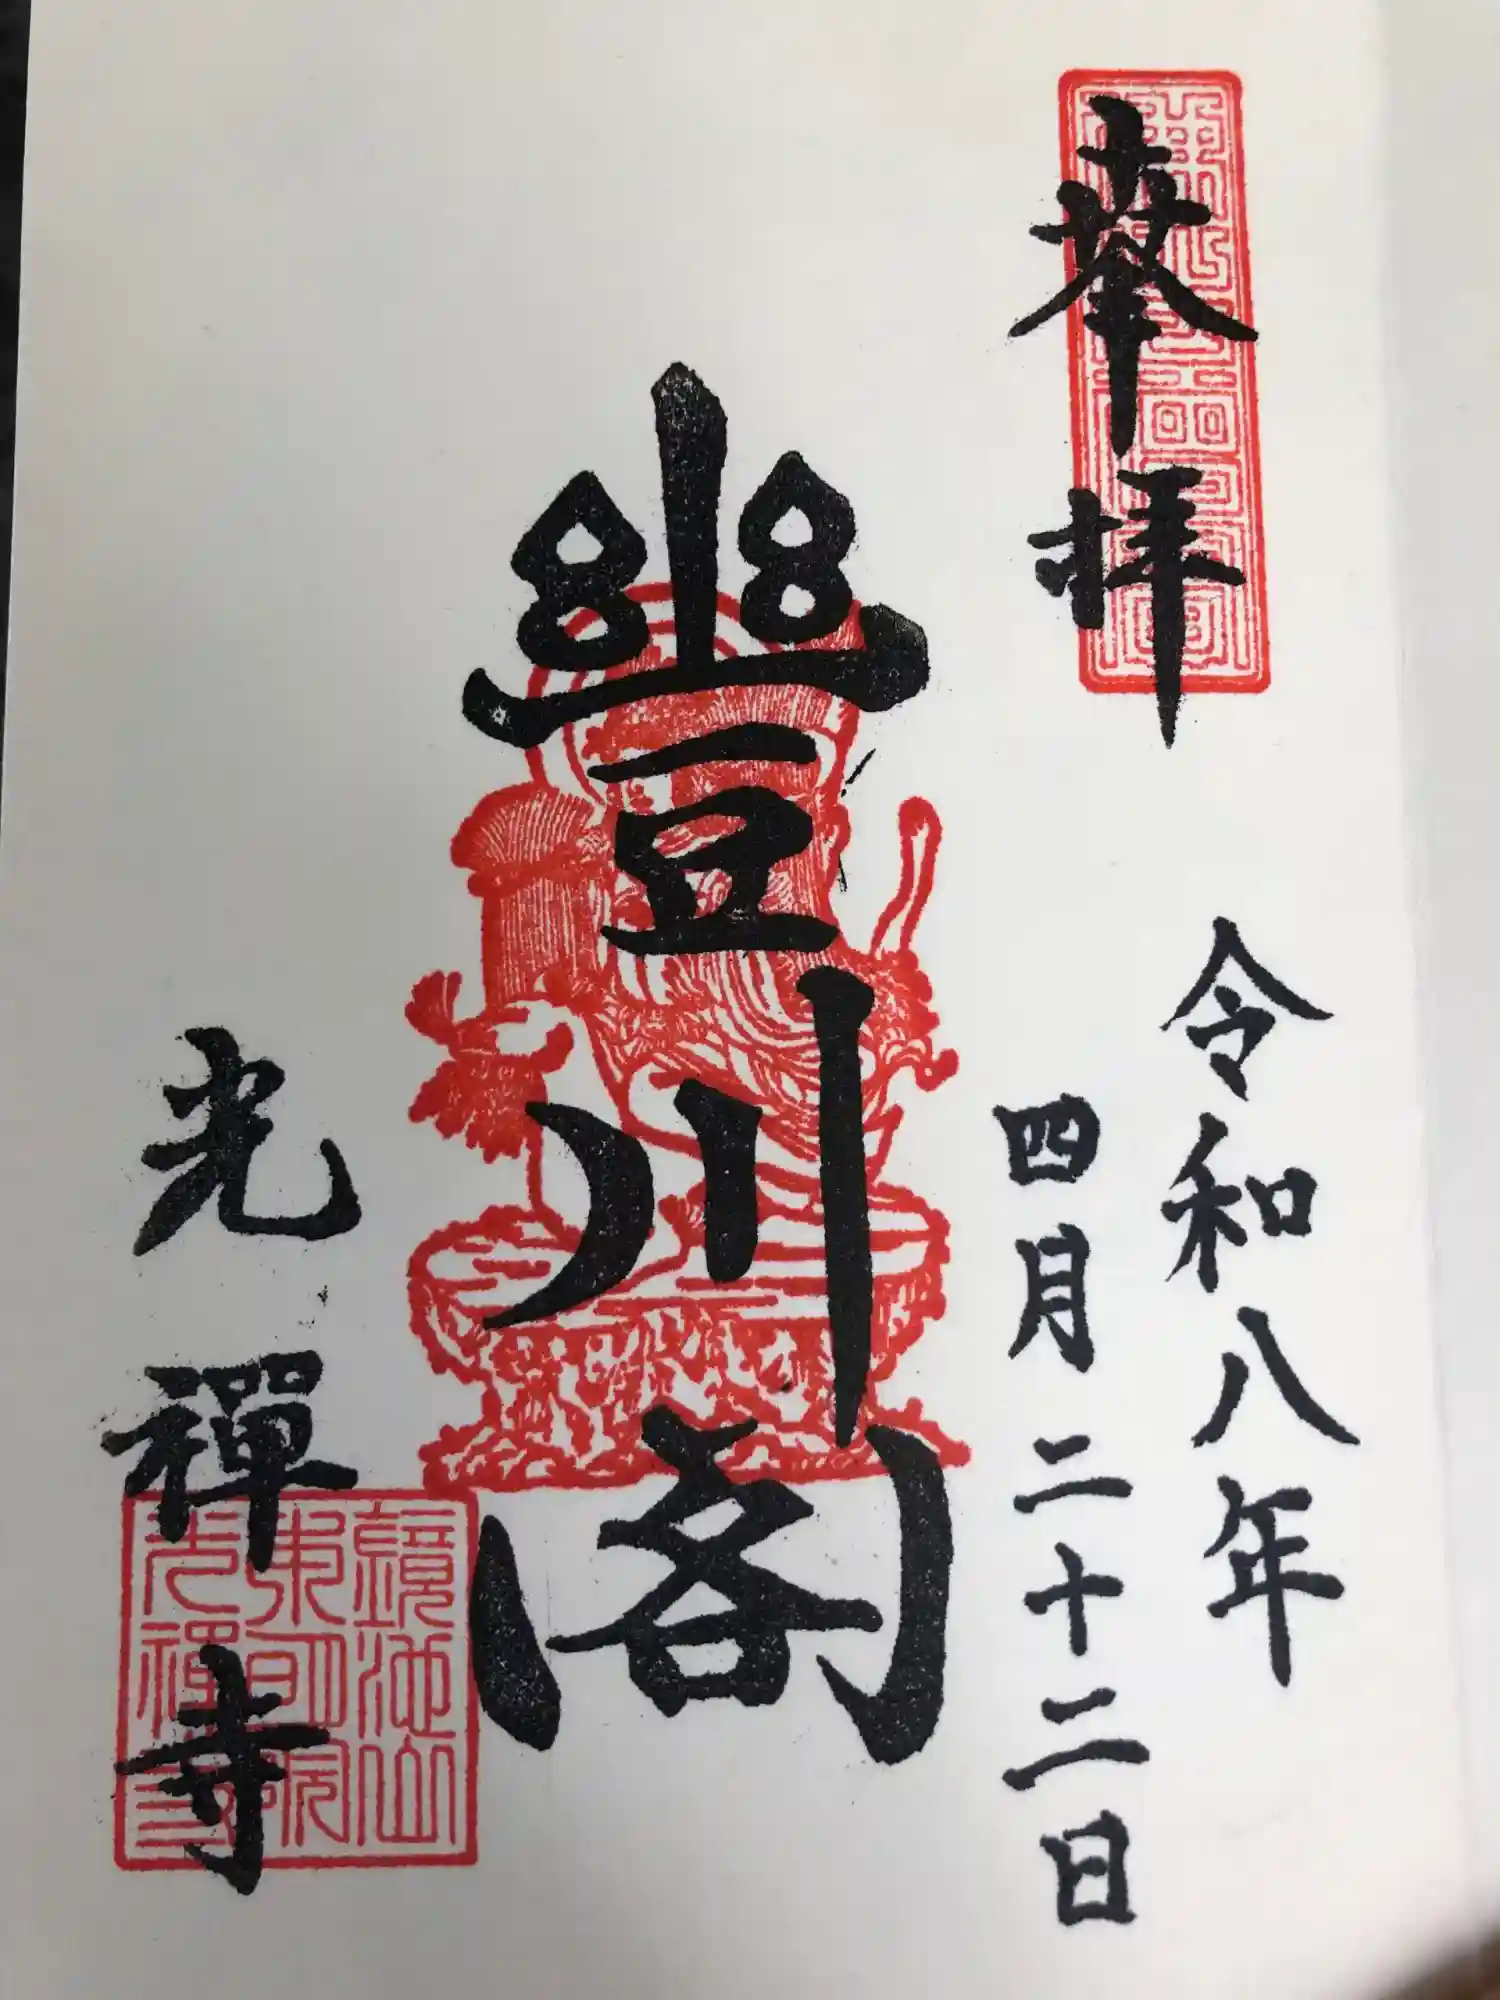 奉拝
令和八年
四月二十二日
豐川閣
光禪寺
鏡池山
東明院
光禪寺